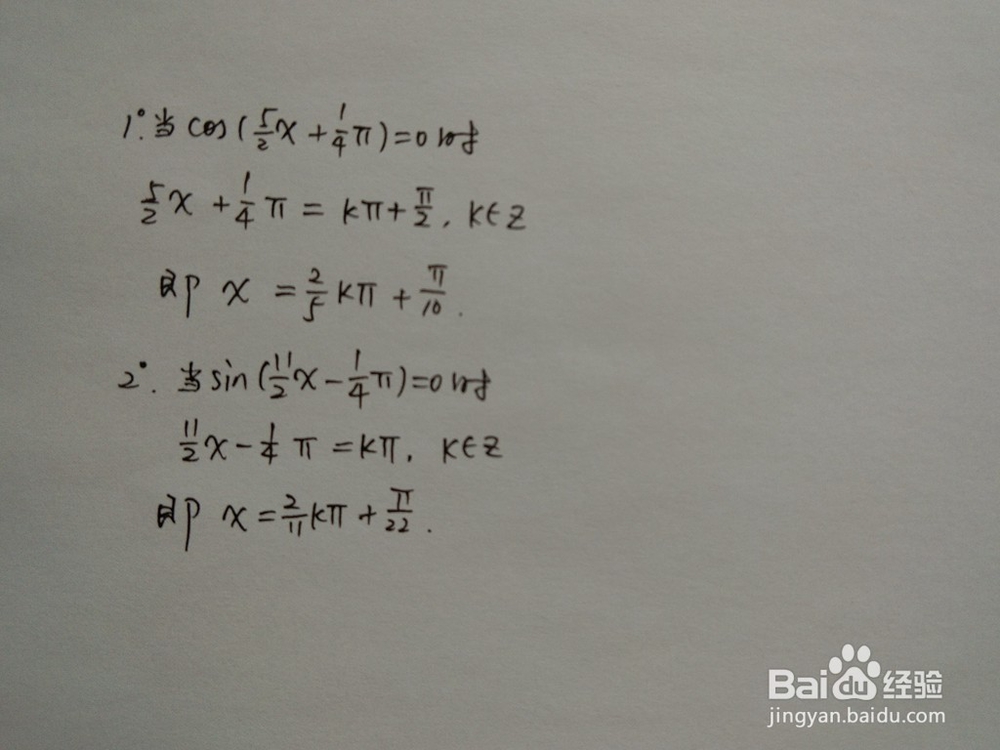 1°. 当 cos(5/2 x + 1/4 π) = 0 时
5/2 x + 1/4 π = kπ + π/2, k∈Z
即 x = 2/5 kπ + π/10.
2°. 当 sin(11/2 x - 1/4 π) = 0 时
11/2 x - 1/4 π = kπ, k∈Z
即 x = 2/11 kπ + π/22.
Baidu经验
jingyan.baidu.com